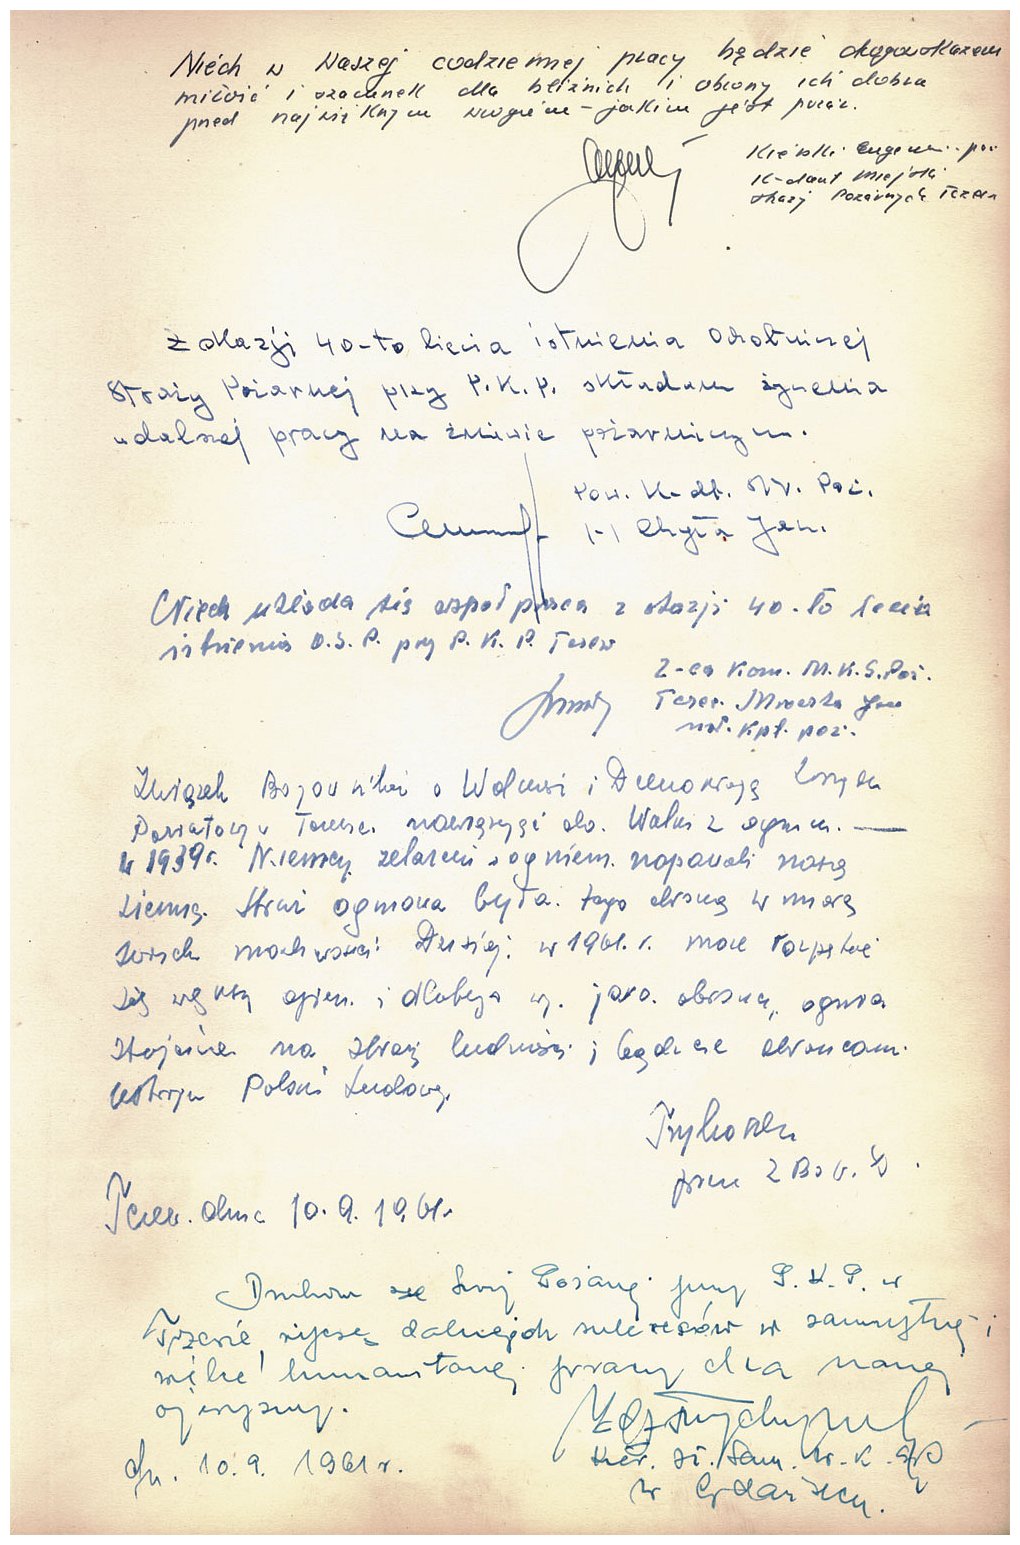 Niech w Waszej codziennej pracy będzie drogowskazem
miłość i szacunek dla bliźnich i obrony ich dobra
przed największym wrogiem – jakim jest pożar.
Eugeniusz
K-dant Miejski
Straży Pożarnych Tczew
Z okazji 40-to lecia istnienia Ochotniczej
Straży Pożarnej przy P.K.P. składam życzenia
w dalszej pracy na żniwie pożarniczym.
Pow. K-dt. Str. Poż.
(-) Chyła Jan.
Niech układa się współpraca z okazji 40-to lecia
istnienia O.S.P. przy P.K.P. Tczew
Z-ca Kom. M.K.S.Poż.
Tczew. Jan
kpt. poż.
Związek Bojowników o Wolność i Demokrację
Powiatowy w Tczewie nawiązuje do. Walki z ogniem. —
W 1939r. Niemcy żelazem i ogniem. napadali naszą
ziemię. Straż ogniowa była. tego obroną w miarę
swych możliwości Dzisiej: w 1961. r. może rozpętać
się ogień. i dlatego wy. jako. obrońcy, ognia
stójcie na straży ludności i bądźcie obrońcami.
Ustroju Polski Ludowej.
prez Z Bo W. D.
Tczew. dnia 10.9.1961r.
Druhom ze Straży Pożarnej przy P.K.P. w
Tczewie życzę dalszych sukcesów w zaszczytnej i
wielce humanitarnej pracy dla naszej
ojczyzny.
dn. 10.9. 1961 r.
W.K.
w Gdańsku.